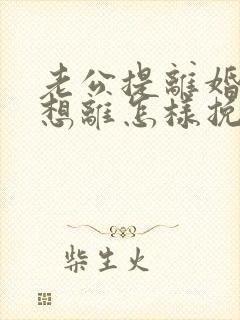 老公提離婚
想離怎樣挽
柴生火